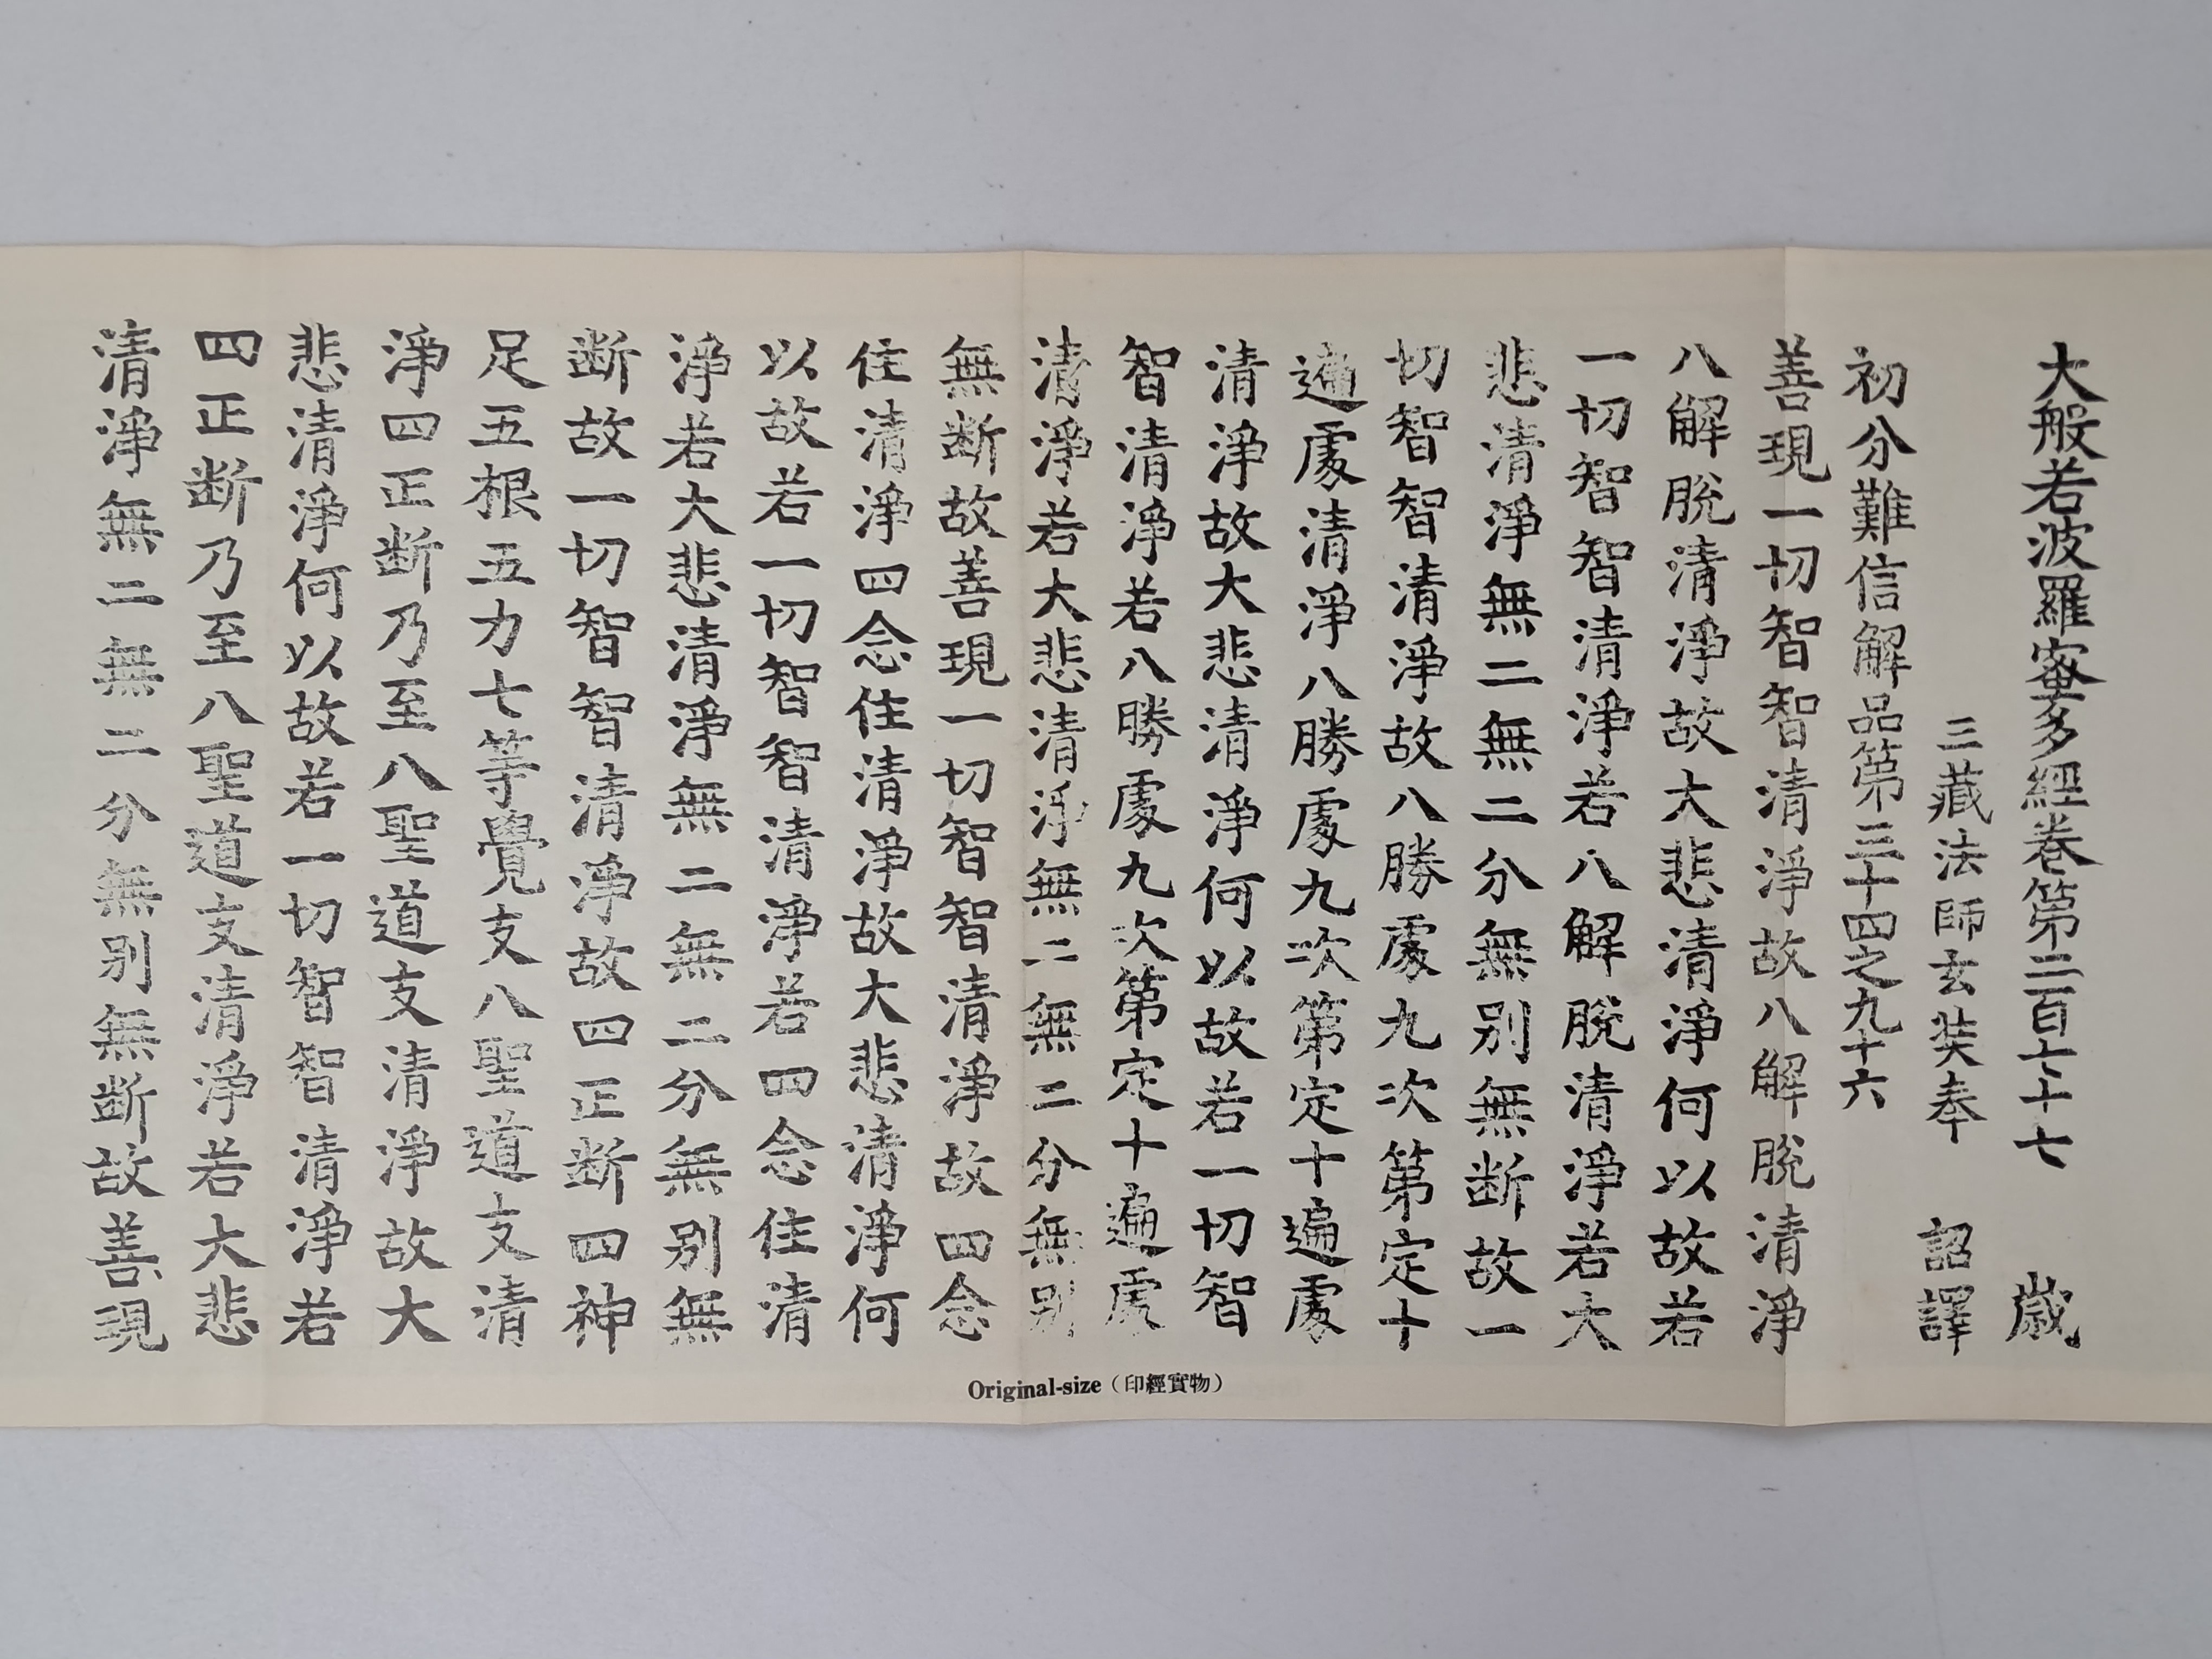 大般若波羅蜜多經卷第二百七十七 歲
三藏法師玄奘奉 詔譯
初分難信解品第三十四之九十六
善現一切智智清淨故八解脫清淨
八解脫清淨故大悲清淨何以故若
一切智智清淨若八解脫清淨若大
悲清淨無二無二分無別無断故一
切智智清淨故八勝處九次第定十
遍處清淨八勝處九次第定十遍處
清淨故大悲清淨何以故若一切智
智清淨若八勝處九次第定十遍處
清淨若大悲清淨無二無二分無別
無断故善現一切智智清淨故四念
住清淨四念住清淨故大悲清淨何
以故若一切智智清淨若四念住清
淨若大悲清淨無二無二分無別無
断故一切智智清淨故四正断四神
足五根五力七等覺支八聖道支清
淨四正断乃至八聖道支清淨故大
悲清淨何以故若一切智智清淨若
四正断乃至八聖道支清淨若大悲
清淨無二無二分無别無断故善現
Original-size（印經實物）